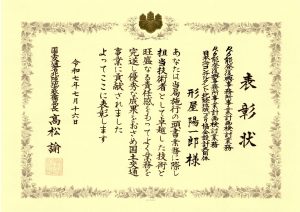 表彰状
形屋陽一郎様
あなたは当局施行の頭書業務に際し
担当技術者として卓越した技術と
旺盛なる責任感をもってよく業務を
完遂し優秀な成果をおさめ国土交通
事業に貢献されました
よってここに表彰します
令和七年七月十六日
国土交通省北陸地方整備局長
高松諭